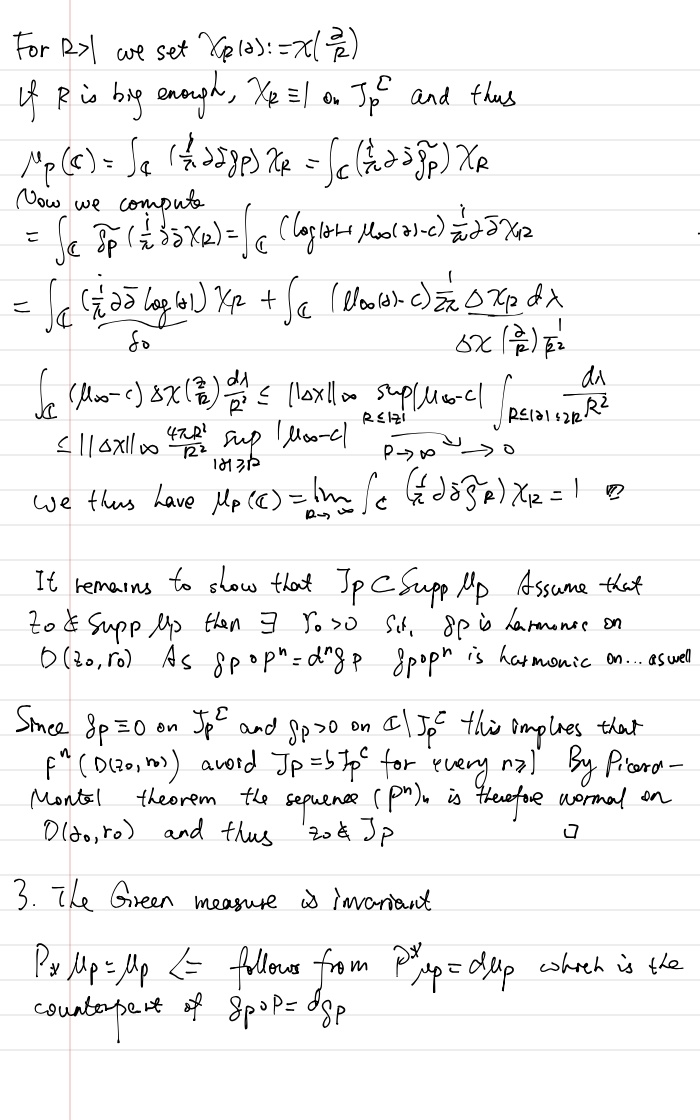 For R>1 we set χ_R(z) := χ(z/R)
If R is big enough, χ_R ≡ 1 on J_P^C and thus
μ_P(ℂ) = ∫_ℂ (i/π ∂∂̄ g_P) χ_R = ∫_ℂ (i/π ∂∂̄ g̃_P) χ_R
Now we compute
= ∫_ℂ g̃_P (i/π ∂∂̄ χ_R) = ∫_ℂ (log|z| + μ_∞(z) - c) i/π ∂∂̄ χ_R
= ∫_ℂ (i/π ∂∂̄ log|z|) χ_R + ∫_ℂ (μ_∞(z) - c) 1/2π Δχ_R dλ
δ_0 Δχ(z/R) 1/R²
∫_ℂ (μ_∞ - c) Δχ(z/R) dλ/R² ≤ ||Δχ||_∞ sup_{R≤|z|} |μ_∞ - c| ∫_{R≤|z|≤2R} dλ/R²
≤ ||Δχ||_∞ 4πR²/R² sup_{|z|≥R} |μ_∞ - c| → 0
we thus have μ_P(ℂ) = lim_{R→∞} ∫_ℂ (i/π ∂∂̄ g̃_R) χ_R = 1
It remains to show that J_P ⊂ Supp μ_P Assume that
z_0 ∉ Supp μ_P then ∃ r_0 > 0 s.t. g_P is harmonic on
D(z_0, r_0) As g_P∘P^n = d^n g_P g_P∘P^n is harmonic on... as well
Since g_P ≡ 0 on J_P^C and g_P > 0 on ℂ\J_P^C this implies that
F^n (D(z_0, r_0)) avoid J_P = bJ_P^C for every n≥1 By Picard-
Montel theorem the sequence (P^n)_n is therefore normal on
D(z_0, r_0) and thus z_0 ∉ J_P □
3. The Green measure is invariant
P_* μ_P = μ_P <= follows from P^*μ_P = dμ_P which is the
counterpart of g_P∘P = dg_P